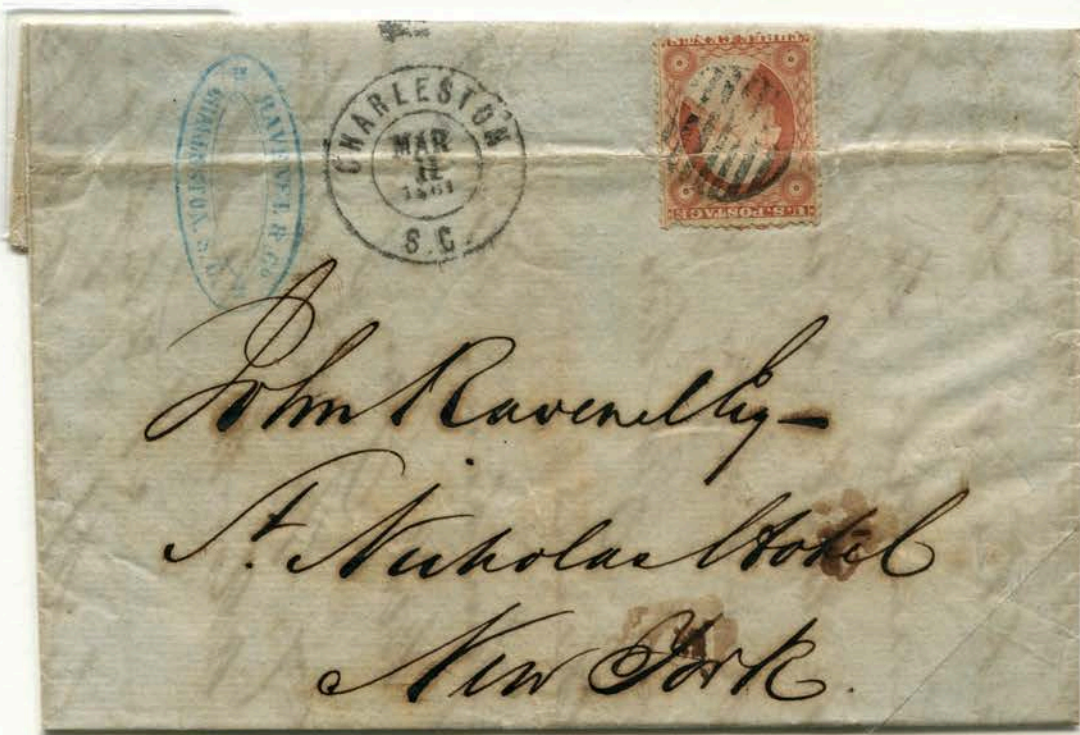 RAVENEL & Co
CHARLESTON, S.C.
CHARLESTON
MAR
1861
S.C.
U.S. POSTAGE
John Ravenel Esq –
St. Nicholas Hotel
New York.